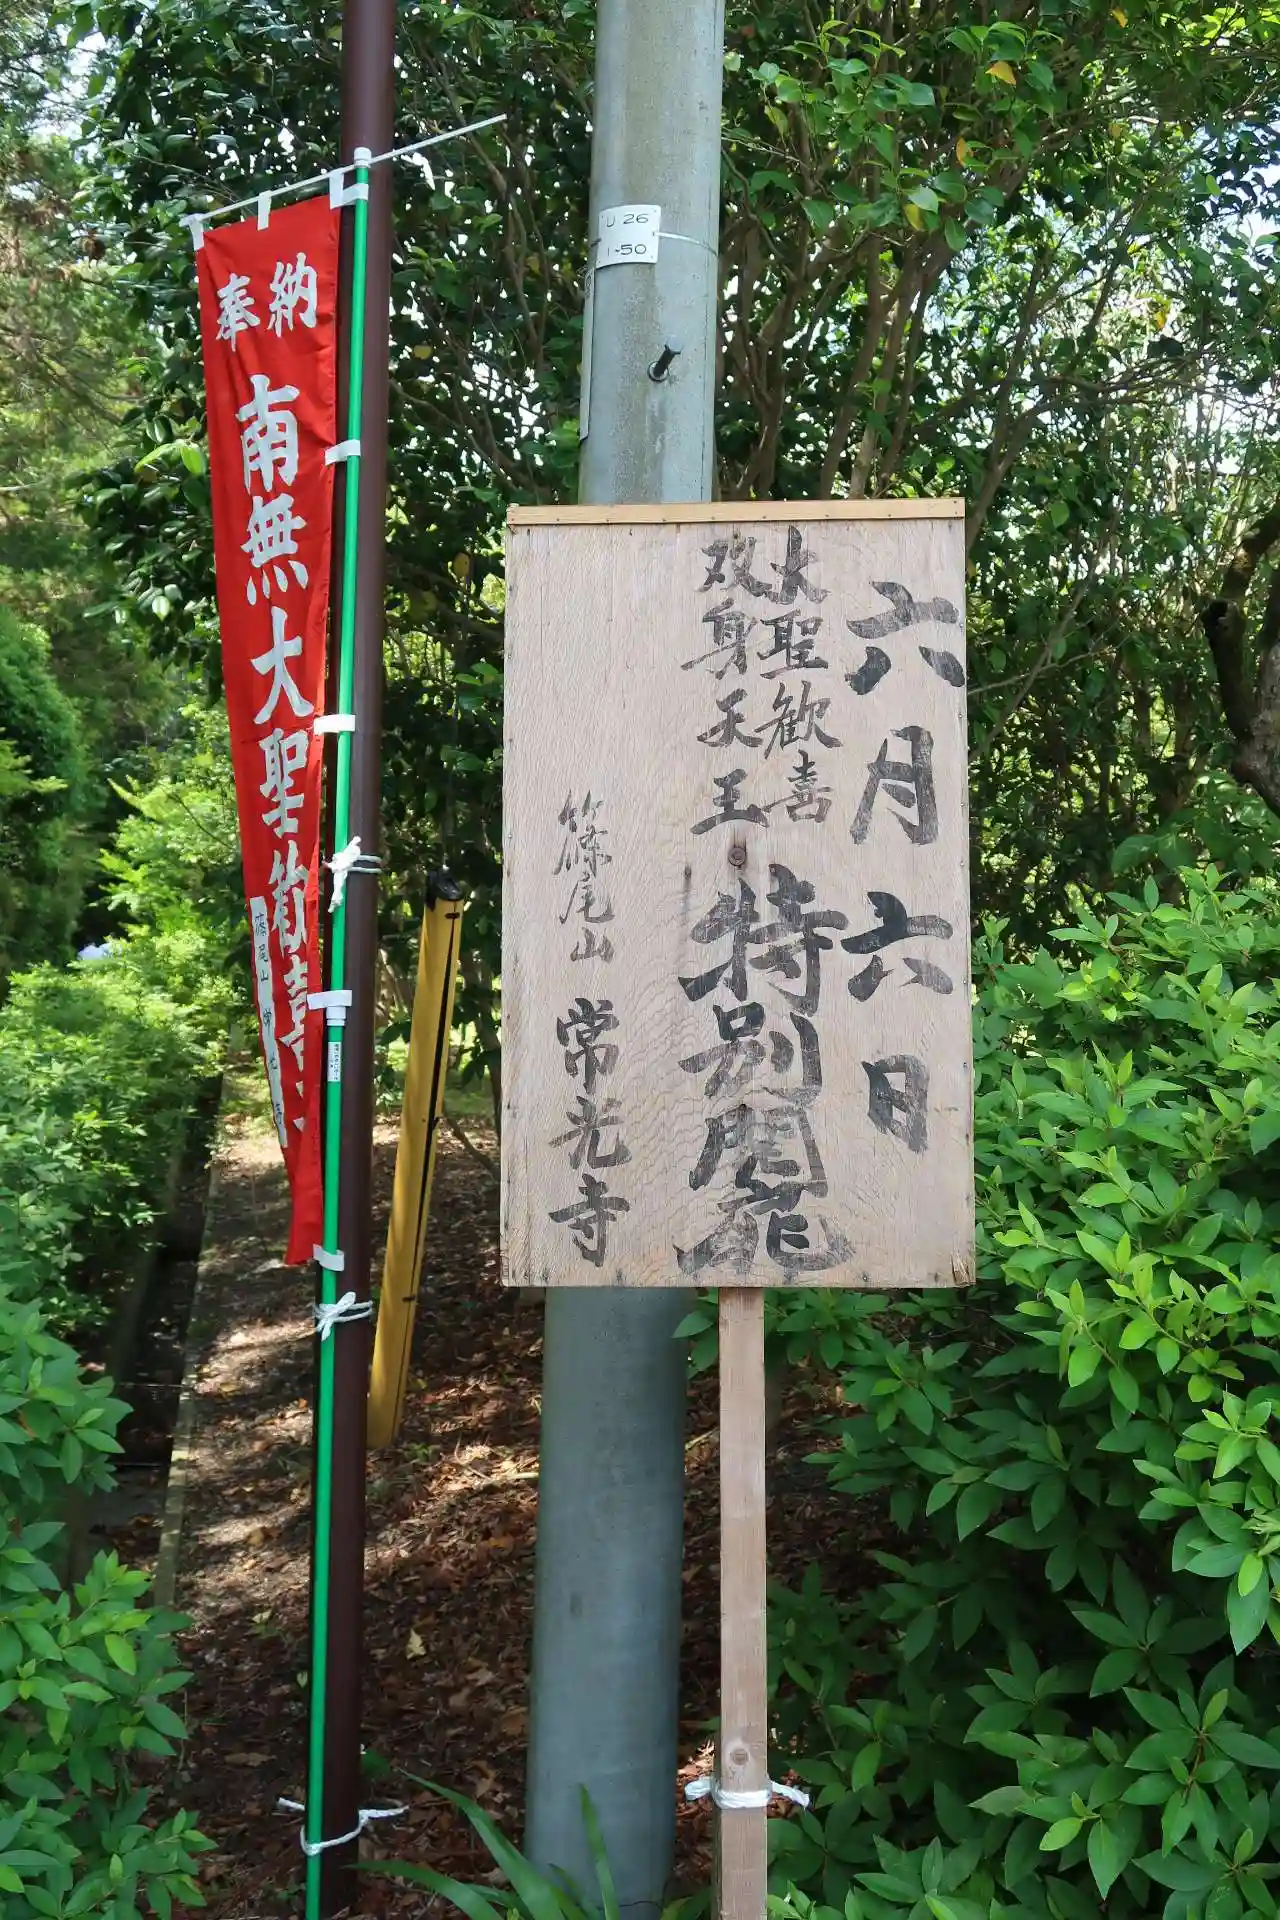 六月六日
大聖歓喜
双身天王
特別開扉
篠尾山 常光寺
奉納
南無大聖歓喜天
篠尾山 常光寺
U 26
1-50